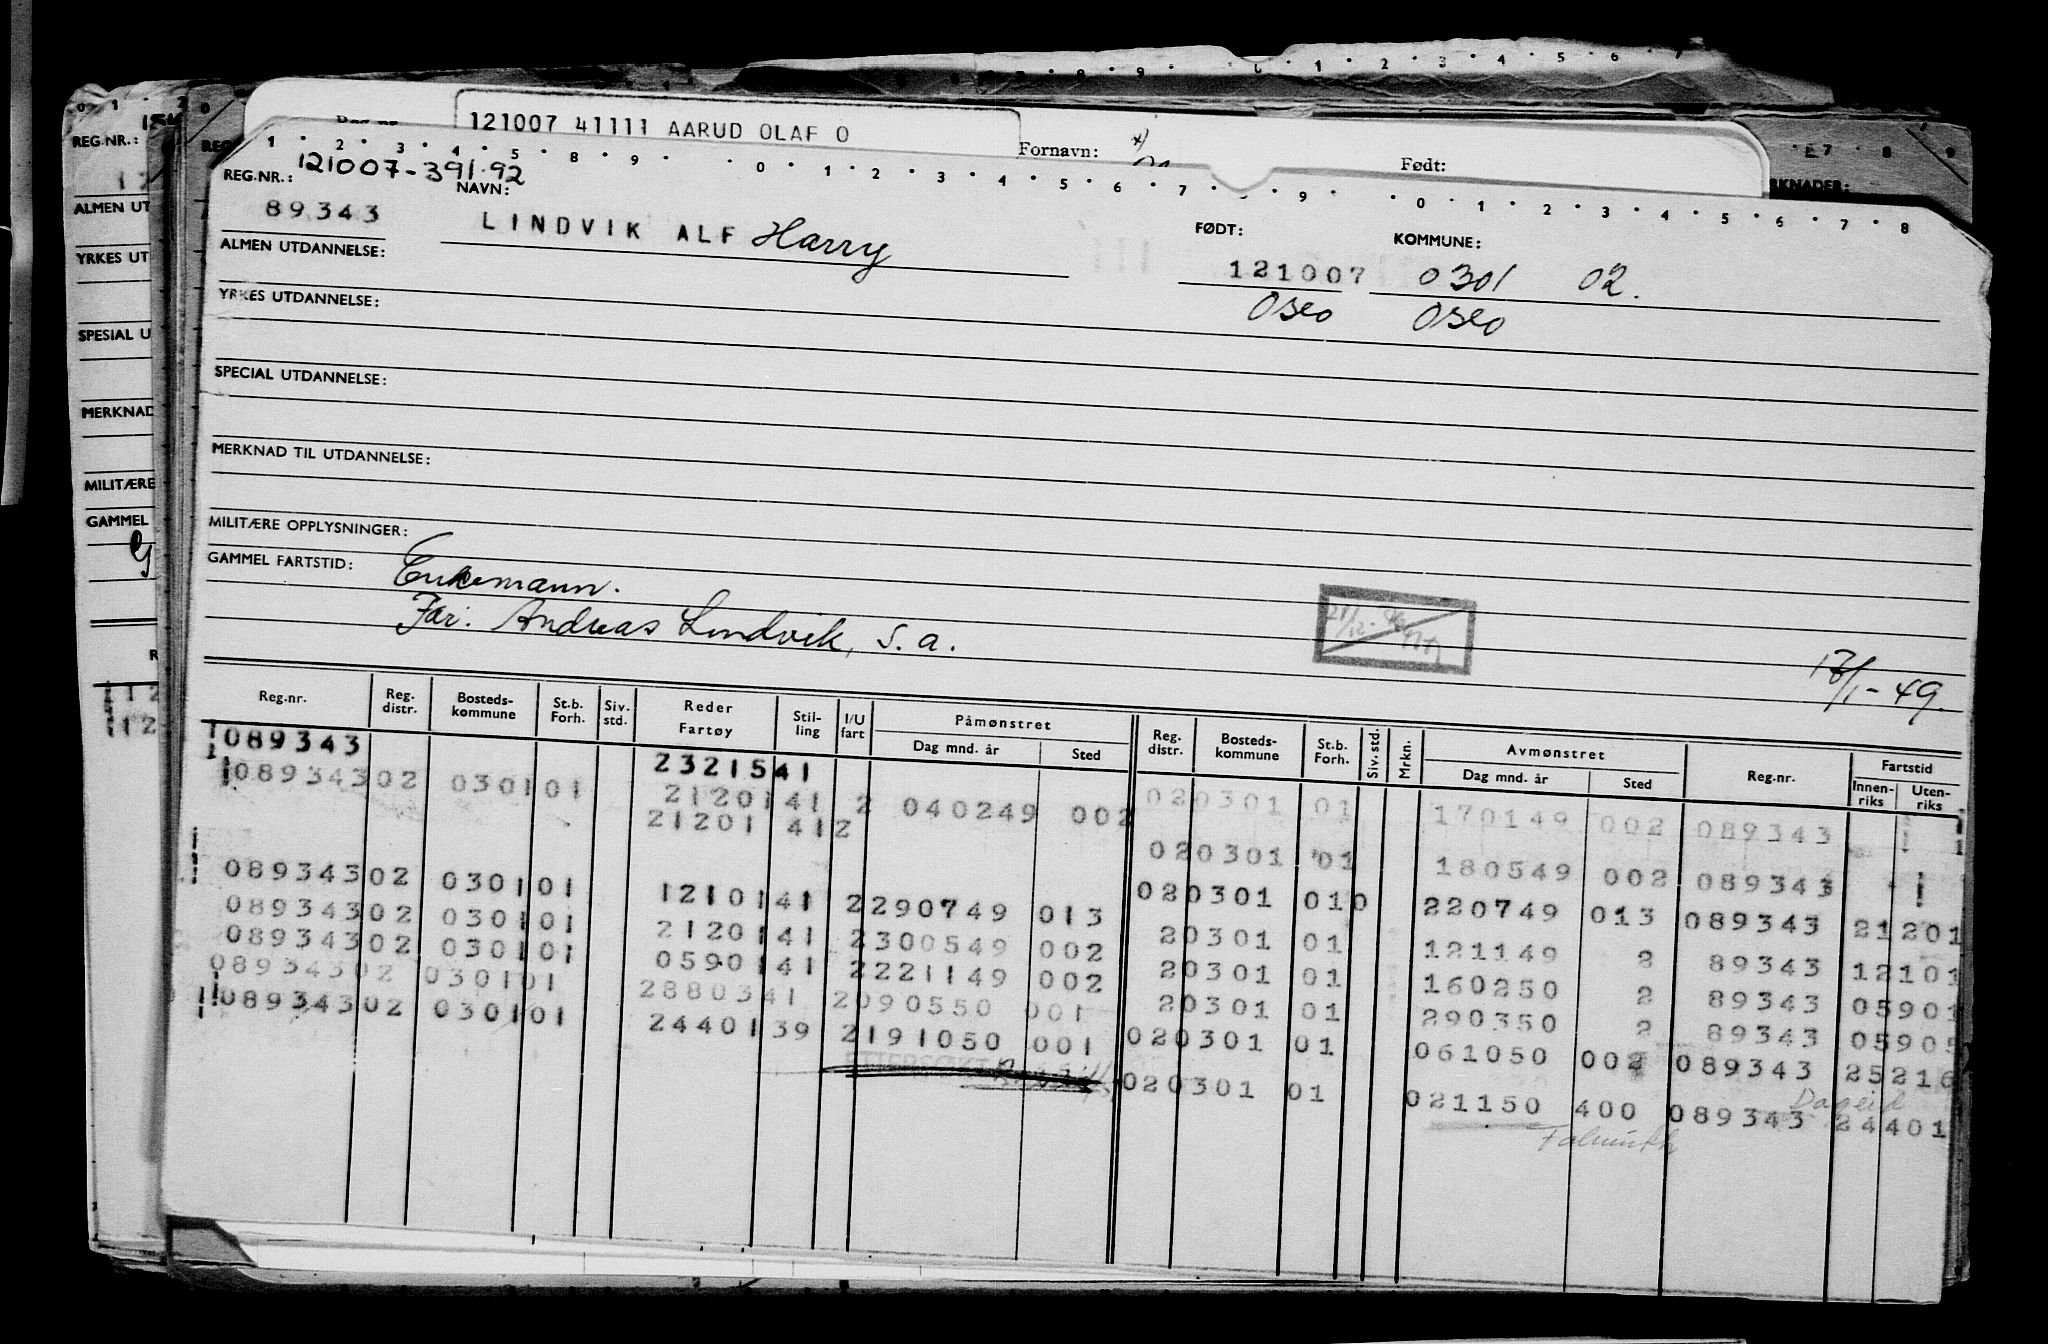 0 · 1 · 2 · 3 · 4 · 5 · 6 · 7
REG.NR.:
ALMEN UT
YRKES UT
SPESIAL U
MERKNAD
MILITÆRE
GAMMEL
121007 41111 AARUD OLAF O
Fornavn:
Født:
1 · 2 · 3 · 4 · 5 · 8 · 9 · 0 · 1 · 2 · 3 · 4 · 5 · 6 · 7 · 9 · 0 · 1 · 2 · 3 · 4 · 5 · 6 · 7 · 8
REG.NR.: 121007-391.92
NAVN:
89343
LINDVIK ALF Harry
FØDT:
KOMMUNE:
121007 0301 02.
Oslo Oslo
ALMEN UTDANNELSE:
YRKES UTDANNELSE:
SPECIAL UTDANNELSE:
MERKNAD TIL UTDANNELSE:
MILITÆRE OPPLYSNINGER:
GAMMEL FARTSTID:
Enkemann.
Far: Andreas Lindvik, s.a.
17/1-49.
Reg.nr. Reg. distr. Bosteds-kommune St.b. Forh. Siv. std. Reder Fartøy Stil-ling I/U fart Påmønstret Dag mnd. år Sted Reg. distr. Bosteds-kommune St.b. Forh. Siv. std. Mrkn. Avmønstret Dag mnd. år Sted Reg.nr. Fartstid Innen-riks Uten-riks
089343 2321541 020301 01 170149 002 089343
089343 02 0301 01 21201 41 2 040249 002
21201 41 2 020301 01 180549 002 089343
089343 02 0301 01 12101 41 2 290749 013 020301 01 0 220749 013 089343 21201
089343 02 0301 01 21201 41 2 300549 002 20301 01 121149 2 89343 12101
089343 02 0301 01 05901 41 2 221149 002 20301 01 160250 2 89343 05901
089343 02 0301 01 28803 41 2 090550 001 20301 01 290350 2 89343 05905
089343 02 0301 01 24401 39 2 191050 001 020301 01 061050 002 089343 25216
020301 01 021150 400 089343 24401
Falmuth